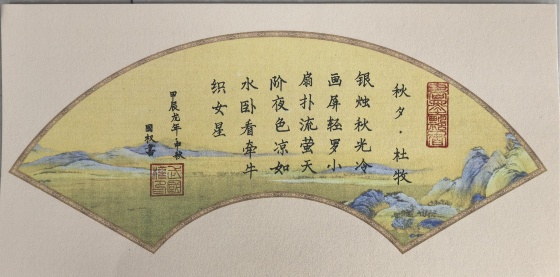 秋夕·杜牧
银烛秋光冷
画屏轻罗小
扇扑流萤天
阶夜色凉如
水卧看牵牛
织女星
甲辰龙年中秋
国权书